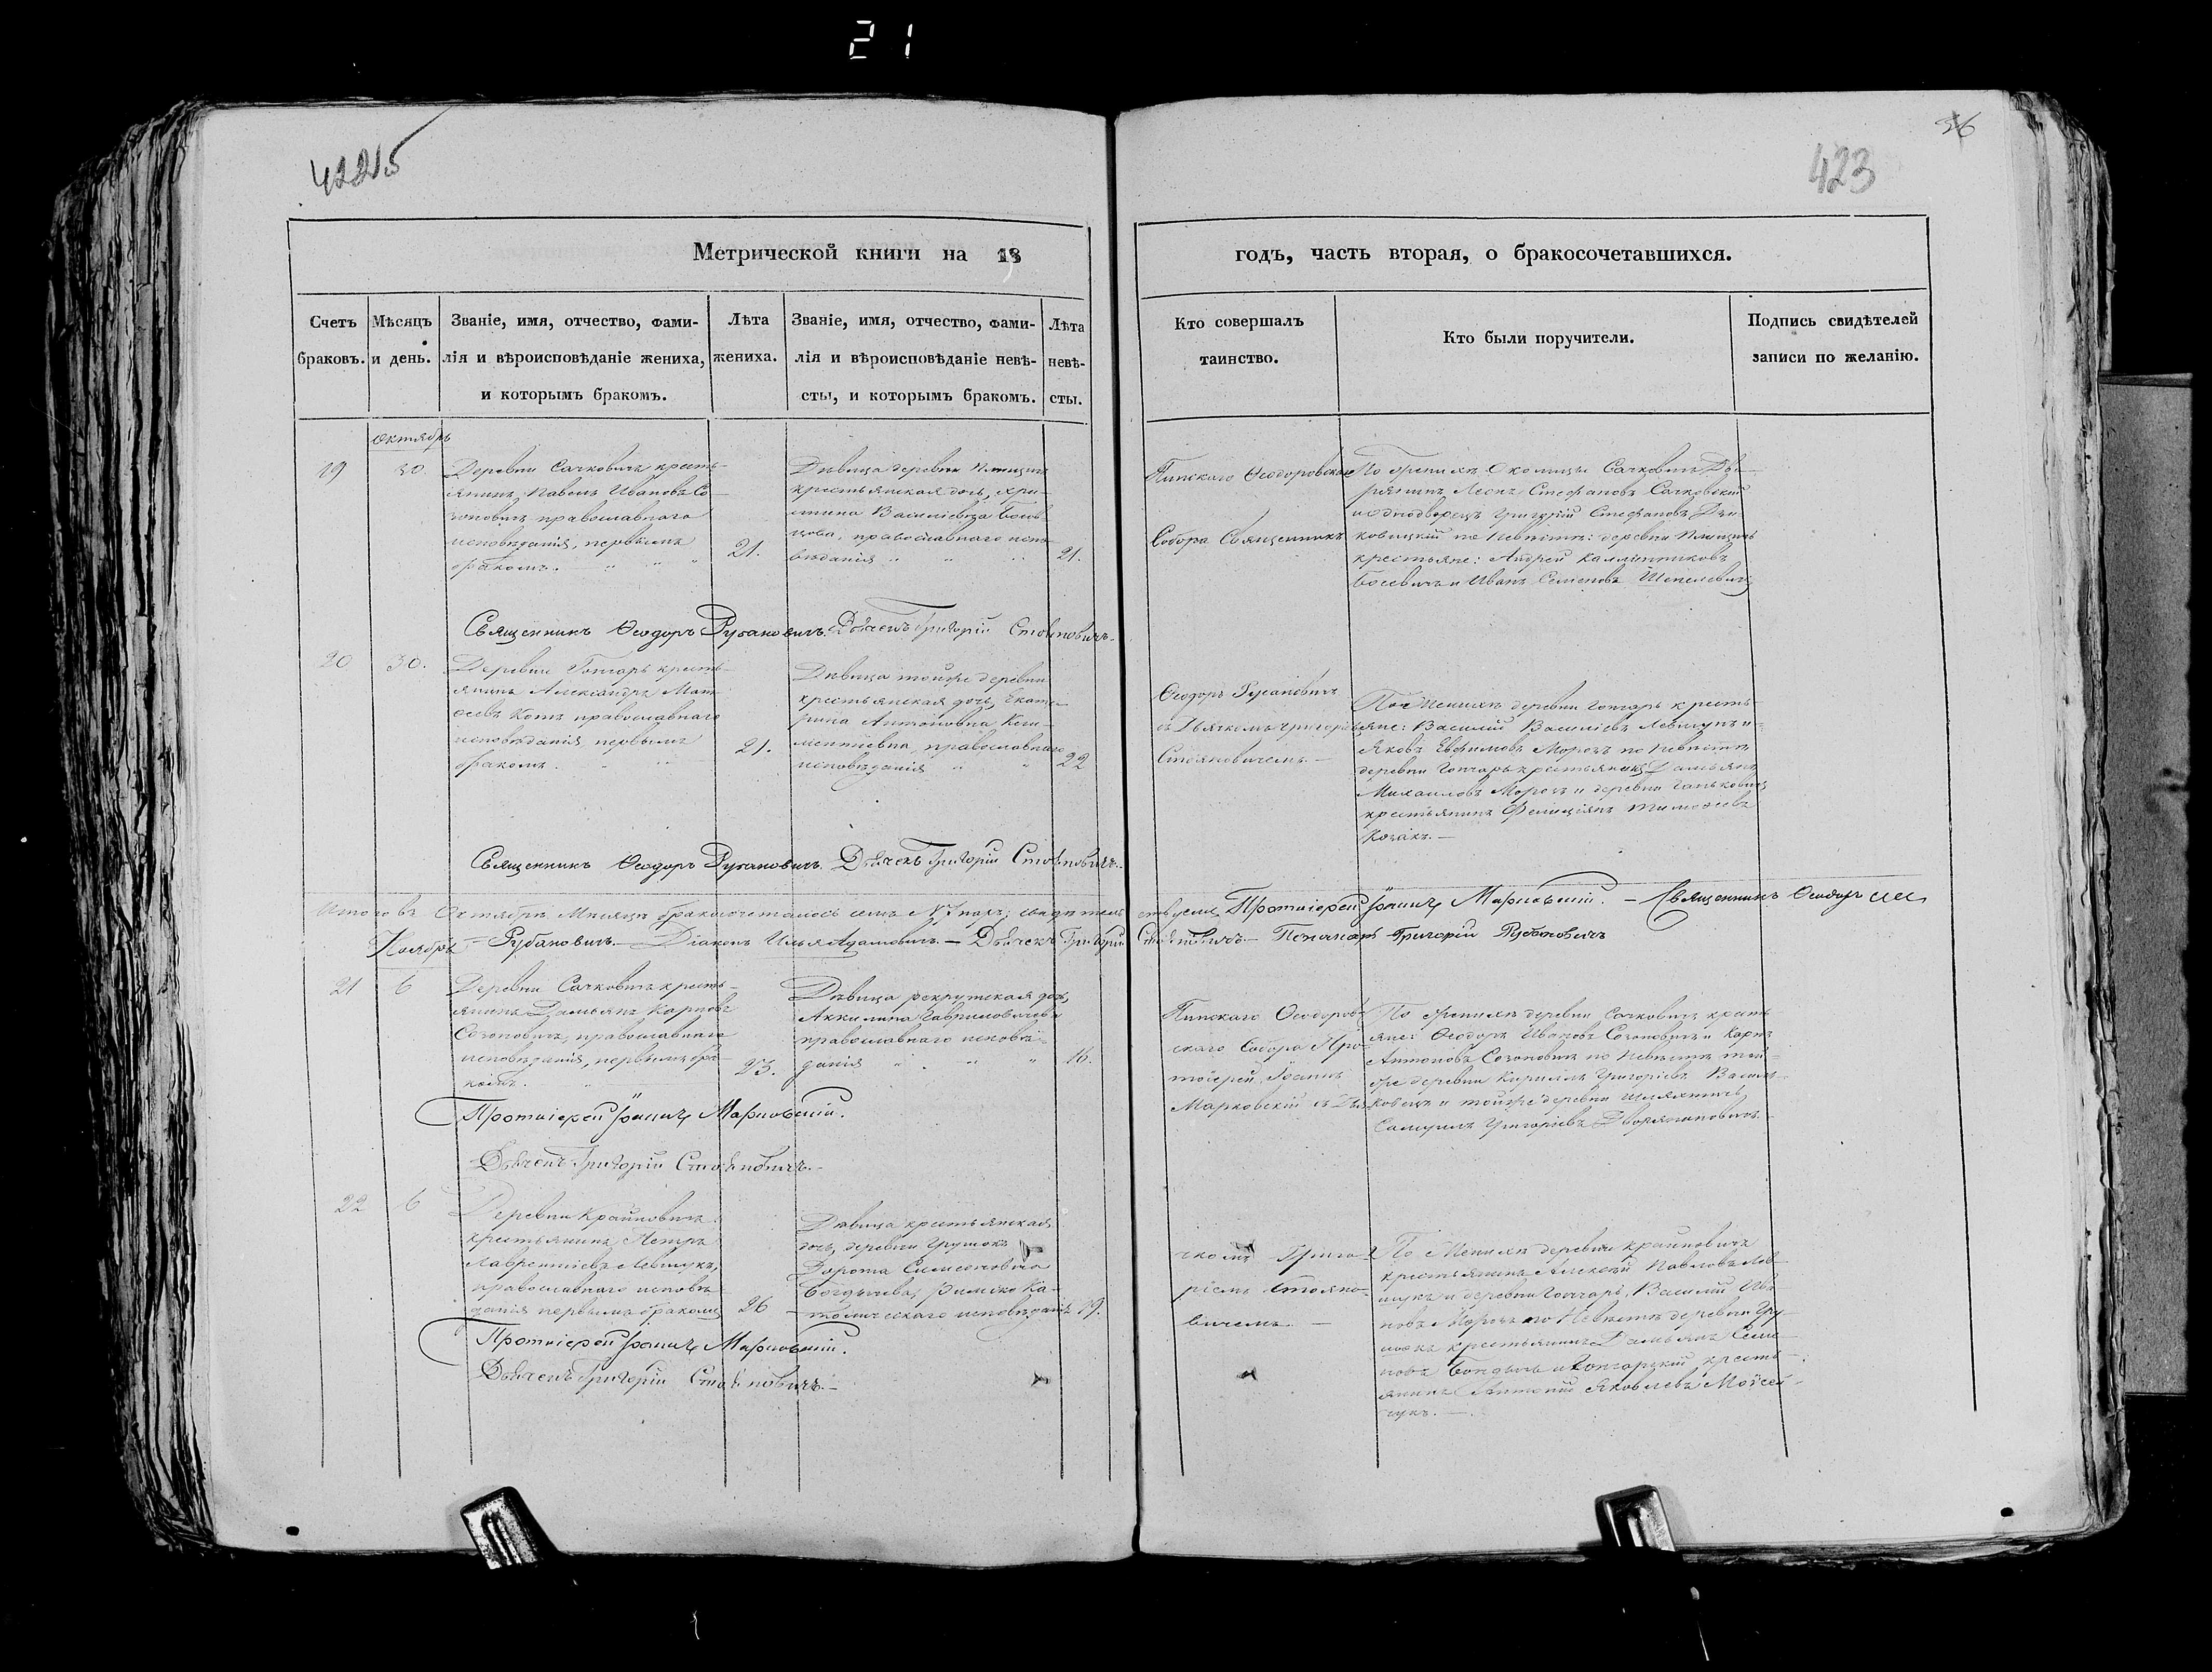 21
422
15
423
36
Метрической книги на 18
годъ, часть вторая, о бракосочетавшихся.
Счетъ браковъ.
Мѣсяцъ и день.
Званіе, имя, отчество, фами-
лія и вѣроисповѣданіе жениха,
и которымъ бракомъ.
Лѣта
жениха.
Званіе, имя, отчество, фами-
лія и вѣроисповѣданіе невѣ-
сты, и которымъ бракомъ.
Лѣта
невѣ-
сты.
Кто совершалъ
таинство.
Кто были поручители.
Подпись свидѣтелей
записи по желанію.
Октябрь
19
30.
Деревни Сачковичъ кресть-
янинъ Павелъ Ивановъ Со-
зоновичъ православнаго
исповѣданія, первымъ
бракомъ.
21.
Дѣвица деревни
крестьянская дочь, Хри-
стина Василіевна
православнаго испо-
вѣданія
21.
Пинскаго Ѳеодоровскаго
Собора Священникъ
По женихѣ Околицы Сачковичъ Дво-
рянинъ Леонъ Стефановъ Сачковскій
и Однодворецъ Григорій Стефановъ
ковицкій по Невѣстѣ: деревни
крестьяне: Андрей
и Иванъ Семеновъ Шепелевичъ
Священникъ Ѳеодоръ Рубановичъ. Дьячекъ Григорій Стояновичъ.
20
30.
Деревни Гончаръ кресть-
янинъ Александръ Мат-
ѳеевъ Котъ православнаго
исповѣданія, первымъ
бракомъ.
21.
Дѣвица тойже деревни
крестьянская дочь, Екате-
рина Антоновна Кли-
ментіевна, православнаго
исповѣданія
22
Ѳеодоръ Рубановичъ
съ Дьячкомъ Григоріемъ
Стояновичемъ.—
По Женихѣ деревни Гончаръ кресть-
яне: Василій Василіевъ Левшунъ и
Яковъ Евфимовъ Морозъ по Невѣстѣ
деревни Гончаръ крестьянинъ Дамьянъ
Михаиловъ Морозъ и деревни
крестьянинъ Фелиціянъ Тимоѳеевъ
Козакъ.—
Священникъ Ѳеодоръ Рубановичъ. Дьячекъ Григорій Стояновичъ.
Итого въ Октябрѣ Мѣсяцѣ бракосочеталось семь N 7 паръ; свидѣтельствуемъ Протоіерей Іоаннъ Марковскій. — Священникъ Ѳеодоръ
Рубановичъ.— Діаконъ Илья Адамовичъ.— Дьячекъ Григорій Стояновичъ— Пономарь Григорій Рубановичъ
Ноябрь
21
6
Деревни Сачковичъ кресть-
янинъ Дамьянъ Карповъ
Созоновичъ, православнаго
исповѣданія, первымъ бра-
комъ.
23.
Дѣвица рекрутская дочь,
Аккилина Гавриловичева
православнаго исповѣ-
данія
16.
Пинскаго Ѳеодоров-
скаго Собора Про-
тоіерей Іоаннъ
Марковскій съ Дья-
По женихѣ деревни Сачковичъ кресть-
яне: Ѳеодоръ Ивановъ Созоновичъ и Карпъ
Антоновъ Созоновичъ по Невѣстѣ той-
же деревни Кириллъ Григоріевъ Василь-
ковецъ и тойже деревни шляхтичъ,
Самуилъ Григоріевъ Дворяниновичъ.
Протоіерей Іоаннъ Марковскій.
Дьячекъ Григорій Стояновичъ.—
22
6
Деревни Крайновичъ
крестьянинъ Петръ
Лаврентіевъ Левшукъ,
православнаго исповѣ-
данія первымъ бракомъ
26
Дѣвица крестьянская
дочь, деревни Грушокъ
Дорота Симеоновна
Римско Ка-
толическаго исповѣданія
19.
чкомъ Григо-
ріемъ Стояно-
вичемъ. —
По Женихѣ деревни Крайновичъ
крестьянинъ Алексѣй Павловъ Лев-
шукъ и деревни Гончаръ, Василій Ива-
новъ Морозъ по Невѣстѣ деревни Гру-
шокъ крестьянинъ Дамьянъ Семе-
новъ Бондычъ и Гончарскій кресть-
янинъ Антоній Яковлевъ Мойсей-
чукъ.—
Протоіерей Іоаннъ Марковскій.
Дьячекъ Григорій Стояновичъ.—